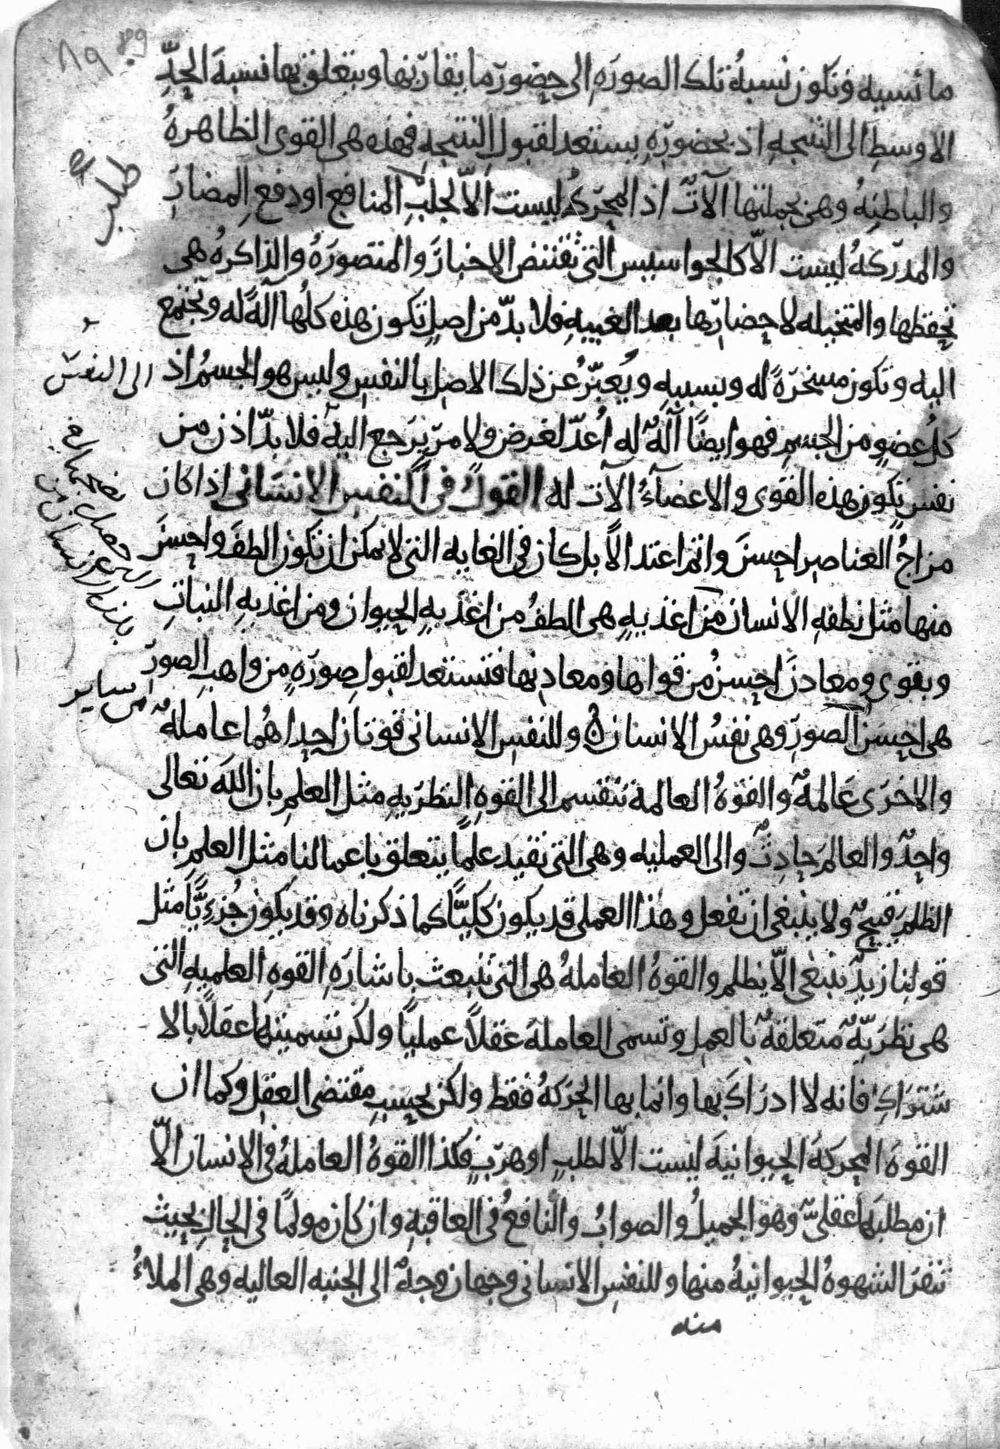 ٨٩ 89
ما نسيه وتكون نسبة تلك الصورة الى حضور ما يقارنها ويتعلق بها نسبة الحد
الاوسط الى النتيجة اذ بحضوره يستعد لقبول النتيجة فهذه هي القوى الظاهرة
والباطنة وهي بجملتها آلات اذ المحركة ليست الا لجلب المنافع او دفع المضار
والمدركة ليست الا كالجواسيس التي تقتنص الاخبار والمتصورة والذاكرة هي
تحفظها والمتخيلة لاحضارها بعد الغيبة فلا بد من اصل تكون هذه كلها آلة له وتجتمع
اليه وتكون مسخرة له وبسببه ويعبر عن ذلك الاصل بالنفس وليس هو الجسم اذ
كل عضو من الجسم فهو ايضا آلة له اعد لغرض ولامر يرجع اليه فلا بد اذن من
نفس تكون هذه القوى والاعضاء آلات له القول في النفس الانساني اذا كان
مزاج العناصر احسن واتم اعتدالا بل كان في الغاية التي لا يمكن ان تكون الطف واحسن
منها مثل نطفة الانسان من اغذية هي الطف من اغذية الحيوان ومن اغذية النبات
وبقوى ومعادن احسن من قواها ومعادنها فتستعد لقبول صورة من واهب الصور
هي احسن الصور وهي نفس الانسان وللنفس الانساني قوتان احداهما عاملة
والاخرى عالمة والقوة العالمة تنقسم الى القوة النظرية مثل العلم بان الله تعالى
واحد والعالم حادث والى العملية وهي التي تفيد علما يتعلق باعمالنا مثل العلم بان
الظلم قبيح ولا ينبغي ان تفعل وهذا العملي قد يكون كليا كما ذكرناه وقد يكون جزءيا مثل
قولنا زيد ينبغي الا يظلم والقوة العاملة هي التي تنبعث باشارة القوة العلمية التي
هي نظرية متعلقة بالعمل وتسمى العاملة عقلا عمليا ولكن تسميتها عقلا بالا
شتراك فانه لا ادراك بها وانما بها الحركة فقط ولكن بحسب مقتضى العقل وكما ان
القوة المحركة الحيوانية ليست الا لطلب او هرب فكذا القوة العاملة في الانسان الا
ان مطلبها عقلي وهو الجميل والصواب والنافع في العاقبة وان كان مولما في الحال بحيث
تنفر الشهوة الحيوانية منها وللنفس الانساني وجهان وجه الى الجنبة العالية وهي الملاء
منه
طلب
الى النفس
من ساير